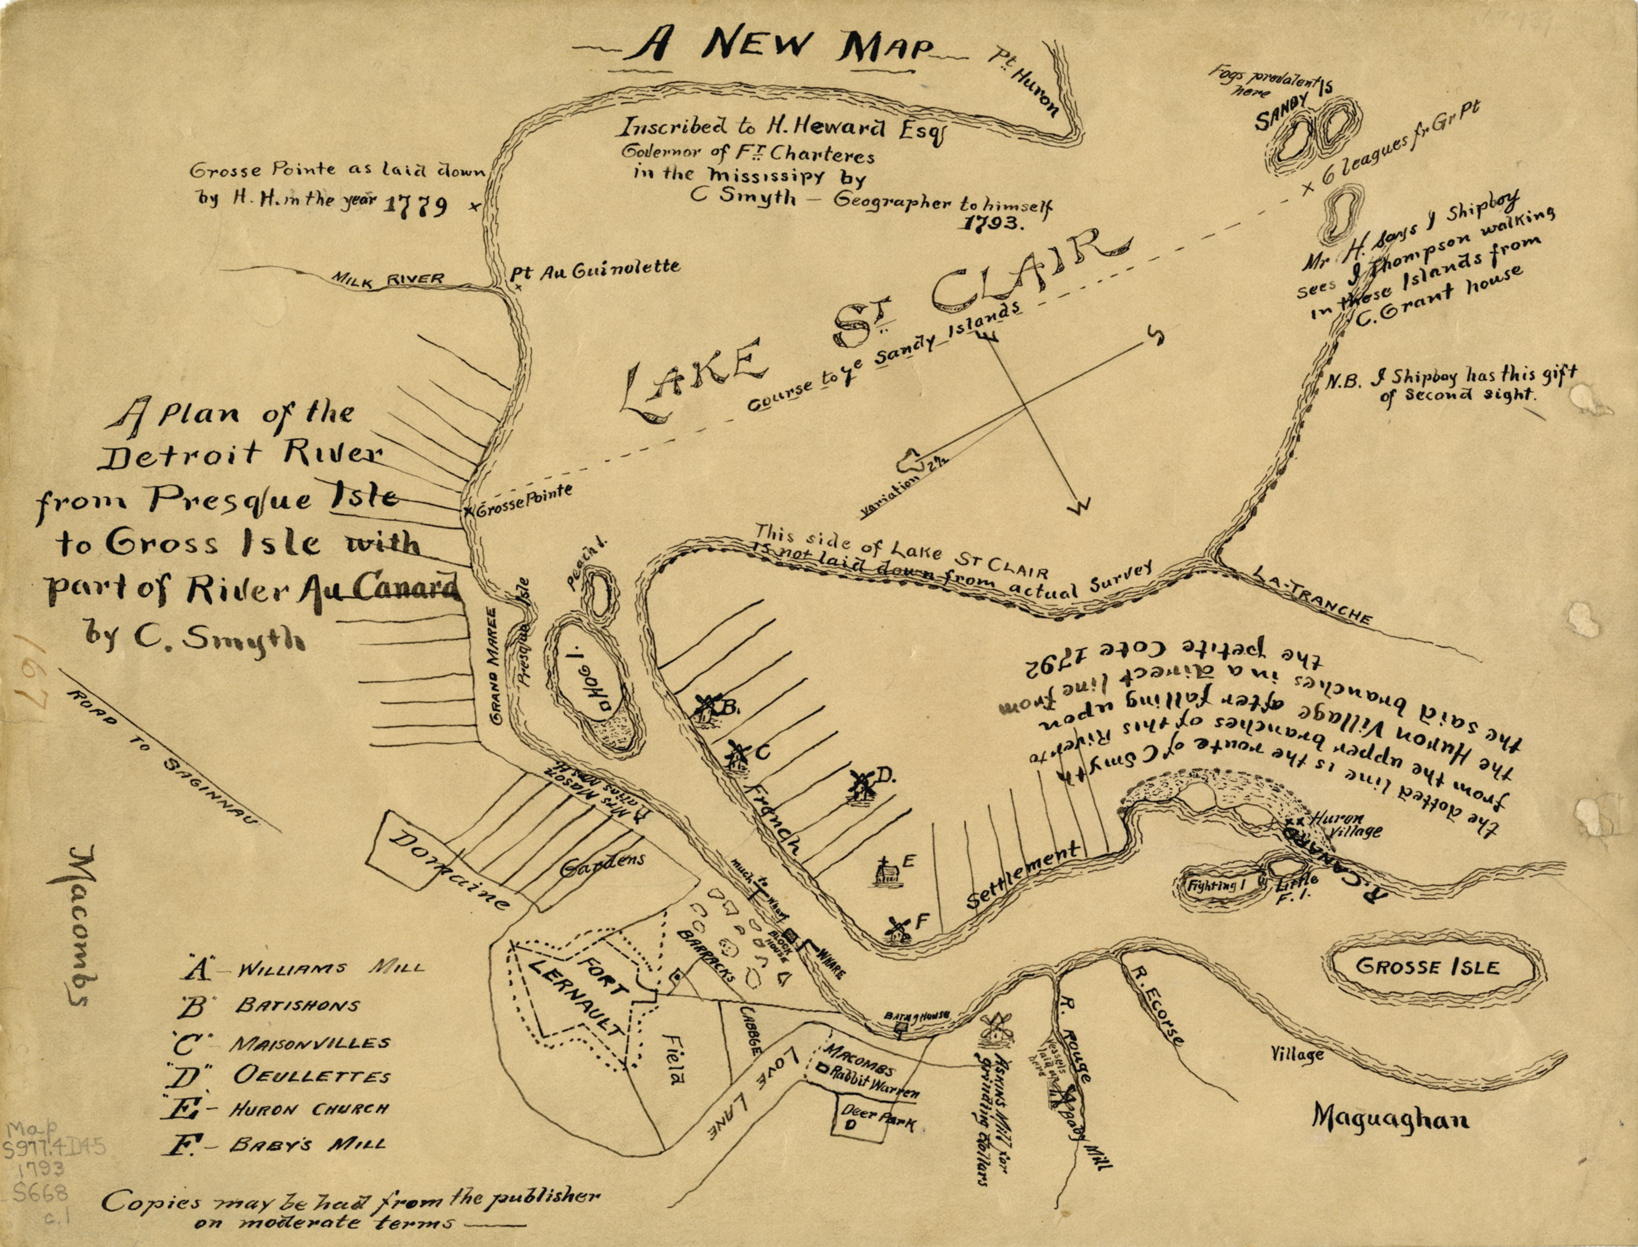 A NEW MAP
Pt. Huron
Inscribed to H. Heward Esq
Governor of FT. Charteres
in the Mississipy by
C Smyth — Geographer to himself
1793.
Fogs prevalent
here
SANDY IS
x 6 leagues fr Gr Pt
Grosse Pointe as laid down
by H. H. in the year 1779 x
MILK RIVER
Pt Au Guinolette
Mr H. says J Shipboy
sees J Thompson walking
in these Islands from
C. Grant house
N.B. J Shipboy has this gift
of second sight.
LAKE ST. CLAIR
Course to ye Sandy Islands
E
S
W
Variation
A Plan of the
Detroit River
from Presque Isle
to Gross Isle with
part of River Au Canard
by C. Smyth
x Grosse Pointe
This side of Lake ST CLAIR
is not laid down from actual Survey
LA-TRANCHE
Peach I.
HOG I.
GRAND MAREE
Presque Isle
the dotted line is the route of C Smyth
from the upper branches of this River to
the Huron Village after falling upon
the said branches in a direct line from
the petite Cote 1792
ROAD TO SAGINNAU
B.
C
D.
E
F
French
Settlement
Huron
Village
R. CANARD
Fighting I
Little
F. I.
GROSSE ISLE
Domaine
Gardens
much to
Wharf
BLOCK
HOUSE
WHARF
BARRACKS
FORT
LERNAULT
Field
CABBGE
LOVE LANE
MACOMBS
Rabbit Warren
Deer Park
D
Askins Mill for
grinding dollars
R. Rouge
Vessels
laid up
here
Mill
R. Ecorse
Village
Maguaghan
Macombs
"A" — WILLIAMS MILL
"B" BATISHONS
"C" MAISONVILLES
"D" OEULLETTES
"E" — HURON CHURCH
F. — BABY'S MILL
Copies may be had from the publisher
on moderate terms —
167
Map
S977.4D45
1793
S668
c.1